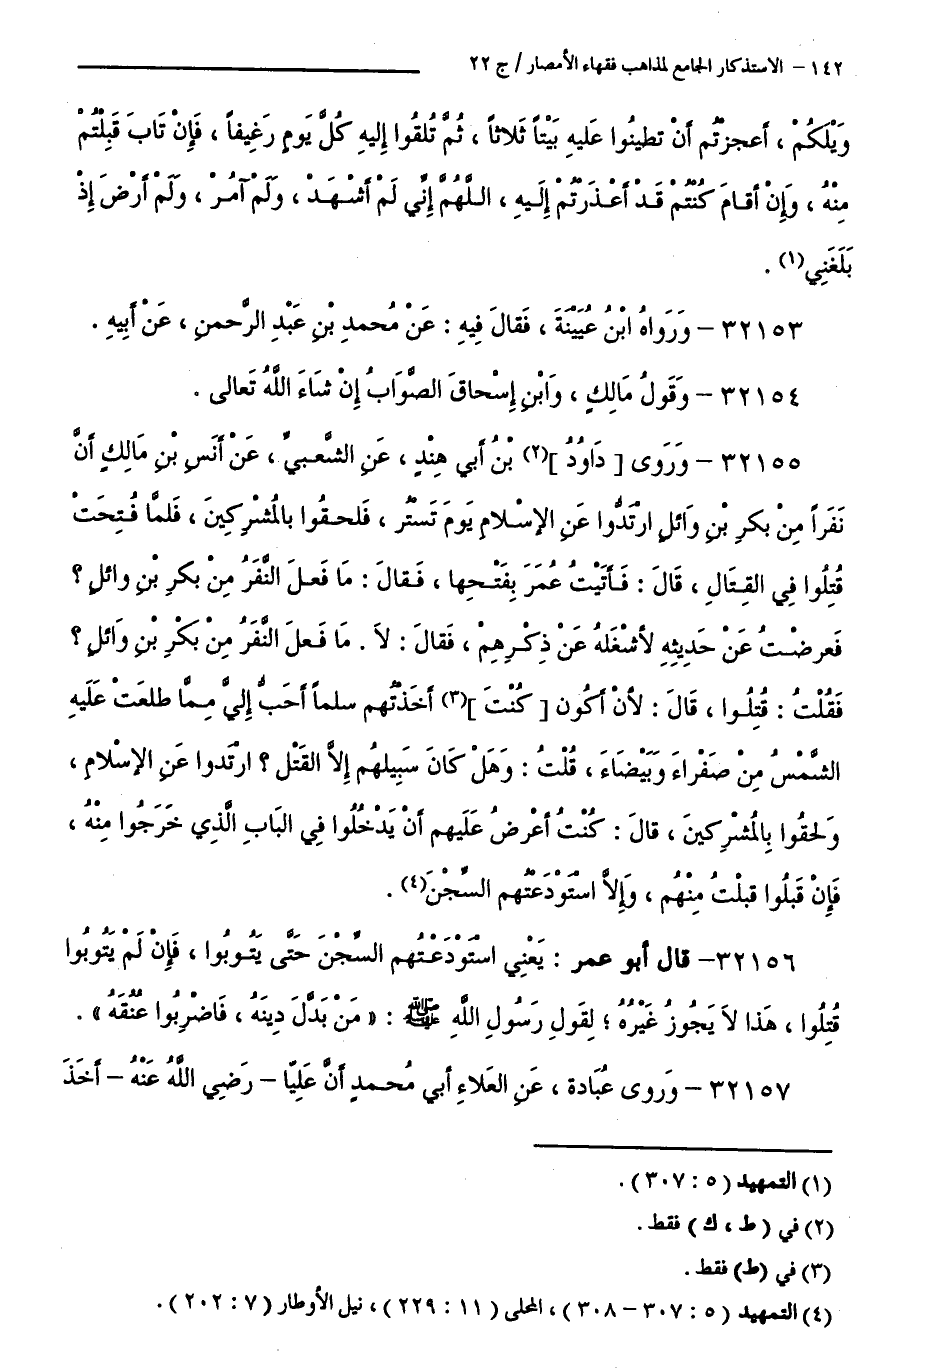 ١٤٢ – الاستذكار الجامع لمذاهب فقهاء الأمصار / ج ٢٢
وَيْلَكُمْ ، أَعجزْتُم أَنْ تطينُوا عَليهِ بَيْتاً ثَلاثاً ، ثُمَّ تُلقُوا إِليهِ كُلَّ يَومٍ رَغِيفاً ، فَإِنْ تَابَ قَبِلْتُمْ
مِنْهُ ، وَإِنْ أَقـامَ كُنْتُمْ قَـدْ أَعْـذَرْتُمْ إِلَـيهِ ، اللَّهُمَّ إِنِّي لَمْ أَشْـهَـدْ ، وَلَمْ آمُـرْ ، وَلَمْ أَرْضَ إِذْ
بَلَغَنِي(١) .
٣٢١٥٣ – وَرَوَاهُ ابْنُ عُيَيْنَةَ ، فَقالَ فِيهِ : عَنْ مُحمدِ بْنِ عَبْدِ الرَّحمنِ ، عَنْ أَبِيهِ .
٣٢١٥٤ – وَقَولُ مَالِكٍ ، وَابْنِ إِسْحاقَ الصَّوَابُ إِنْ شَاءَ اللَّهُ تَعالى .
٣٢١٥٥ – وَرَوى [ دَاوُدُ ](٢) بْنُ أَبي هِنْدٍ ، عَنِ الشَّعبيِّ ، عَنْ أَنَسِ بْنِ مَالِكٍ أَنَّ
نَفَراً مِنْ بكرِ بْنِ وَائلٍ ارْتَدُّوا عَنِ الإِسْـلامِ يَومَ تَستُر ، فَلحـقُوا بالمُشْرِكِينَ ، فَلمَّا فُـتِحَتْ
قُتِلُوا فِي القِـتَالِ ، قَالَ : فَـأَتَيْتُ عُمَرَ بِفَتْـحِها ، فَـقالَ : مَا فَعـلَ النَّفَرُ مِنْ بكرِ بْنِ وائلٍ ؟
فَعرضْـتُ عَنْ حَدِيثِهِ لأَشْغَلَهُ عَنْ ذِكْـرِهِمْ ، فَقالَ : لاَ . مَا فَـعلَ النَّفَرُ مِنْ بَكْرِ بْنِ وَائلٍ ؟
فَقُلْتُ : قُتِلُـوا ، قَالَ : لأَنْ أَكُون [ كُنْتَ ](٣) أَخَذْتُهم سلماً أَحَبُّ إِليَّ مِـمَّا طلعَتْ عَلَيهِ
الشَّمْسُ مِنْ صَفْراءَ وَبَيْضَاءَ ، قُلْتُ : وَهَلْ كَانَ سَبِيلهُم إِلاَّ القَتْل ؟ ارتَدوا عَنِ الإِسْلامِ ،
وَلحقُوا بِالمُشْرِكينَ ، قالَ : كُنْتُ أَعْرضُ عَلَيهم أَنْ يَدْخُلُوا فِي البَابِ الَّذِي خَرَجُوا مِنْهُ ،
فَإِنْ قَبلُوا قبلْتُ مِنْهُم ، وَإِلاَّ اسْتَوْدَعْتُهم السِّجْنَ(٤) .
٣٢١٥٦– قال أبو عمر : يَعْنِي اسْتَوْدَعْـتُهم السِّجْنَ حَتَّى يَتُـوبُوا ، فَإِنْ لَمْ يَتُوبُوا
قُتِلُوا ، هَذا لاَ يَجُوزُ غَيْرُهُ ؛ لِقَولِ رَسُولِ اللَّهِ ﷺ : « مَنْ بَدَّلَ دِينَهُ ، فَاضْرِبُوا عُنُقَهُ » .
٣٢١٥٧ – وَروى عُبَادة ، عَنِ العَلاءِ أبي مُحـمدٍ أَنَّ عَلِيّا – رَضِي اللَّهُ عَنْهُ – أَخَذَ
(١) التمهيد ( ٥ : ٣٠٧ ) .
(٢) في ( ط ، ك ) فقط .
(٣) في (ط) فقط .
(٤) التمهيد ( ٥ : ٣٠٧ – ٣٠٨ ) ، المحلى ( ١١ : ٢٢٩ ) ، نيل الأوطار ( ٧ : ٢٠٢ ) .